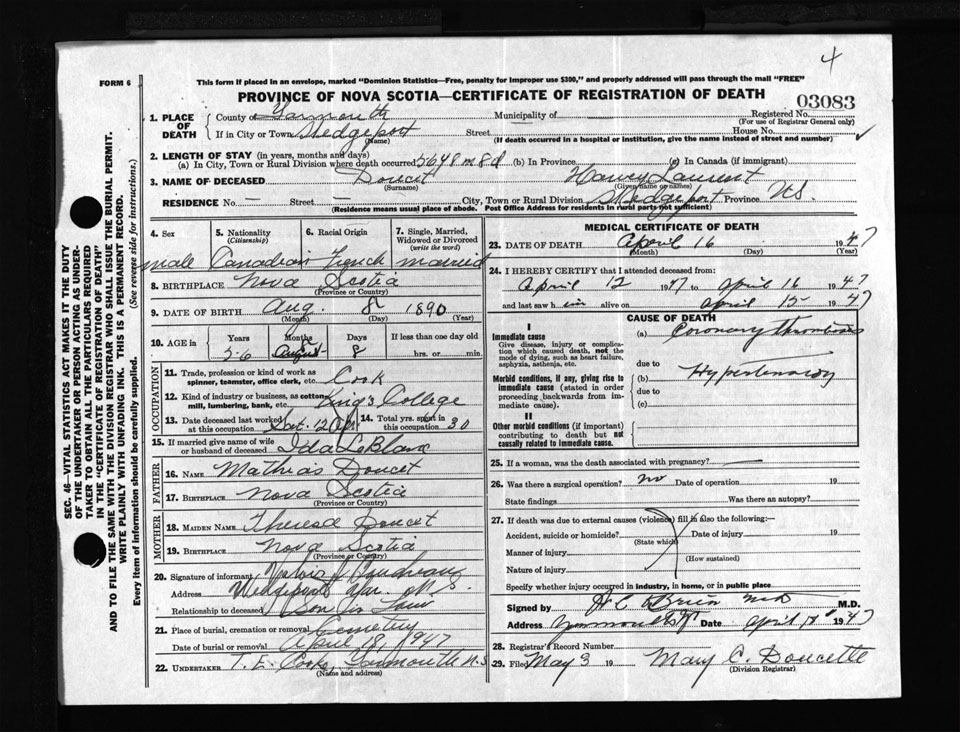 4
FORM 6
This form if placed in an envelope, marked "Dominion Statistics—Free, penalty for improper use $300," and properly addressed will pass through the mail "FREE"
PROVINCE OF NOVA SCOTIA—CERTIFICATE OF REGISTRATION OF DEATH
03083
1. PLACE OF DEATH
County of Yarmouth
Municipality of
Registered No.
(For use of Registrar General only)
If in City or Town Wedgeport
(Name)
Street
House No.
(If death occurred in a hospital or institution, give the name instead of street and number)
2. LENGTH OF STAY (in years, months and days)
(a) In City, Town or Rural Division where death occurred 56 y 8 m 8 d (b) In Province (c) In Canada (if immigrant)
3. NAME OF DECEASED Doucet
(Surname)
Laurent
(Given name or names)
RESIDENCE No. — Street — City, Town or Rural Division Wedgeport Province N.S.
(Residence means usual place of abode. Post Office Address for residents in rural parts not sufficient)
4. Sex
5. Nationality (Citizenship)
6. Racial Origin
7. Single, Married, Widowed or Divorced (write the word)
male Canadian French married
8. BIRTHPLACE Nova Scotia
(Province or Country)
9. DATE OF BIRTH Aug. 8 1890
(Month) (Day) (Year)
10. AGE in
Years Months Days If less than one day old
56 August 8 hrs. or min.
OCCUPATION
11. Trade, profession or kind of work as spinner, teamster, office clerk, etc. Cook
12. Kind of industry or business, as cotton mill, lumbering, bank, etc. King's College
13. Date deceased last worked at this occupation
14. Total yrs. spent in this occupation 30
15. If married give name of wife or husband of deceased Ida LeBlanc
FATHER
16. NAME Mathias Doucet
17. BIRTHPLACE Nova Scotia
(Province or Country)
MOTHER
18. MAIDEN NAME Theresa Doucet
19. BIRTHPLACE Nova Scotia
(Province or Country)
20. Signature of informant
Address Wedgeport Yar. N.S.
Relationship to deceased Son in law
21. Place of burial, cremation or removal Cemetery
Date of burial or removal April 18, 1947
22. UNDERTAKER T. E. Cook, Yarmouth N.S
(Name and address)
MEDICAL CERTIFICATE OF DEATH
23. DATE OF DEATH April 16 1947
(Month) (Day) (Year)
24. I HEREBY CERTIFY that I attended deceased from:
April 12 1947 to April 16 1947
and last saw him alive on April 15 1947
CAUSE OF DEATH
I
Immediate cause
Give disease, injury or complication which caused death, not the mode of dying, such as heart failure, asphyxia, asthenia, etc.
(a) Coronary thrombosis
due to
Morbid conditions, if any, giving rise to immediate cause (stated in order proceeding backwards from immediate cause).
(b) Hypertension
due to
(c)
II
Other morbid conditions (if important) contributing to death but not causally related to immediate cause.
25. If a woman, was the death associated with pregnancy? —
26. Was there a surgical operation? no Date of operation 19
State findings Was there an autopsy?
27. If death was due to external causes (violence) fill in also the following:—
Accident, suicide or homicide? Date of injury 19
(State which)
Manner of injury
(How sustained)
Nature of injury
Specify whether injury occurred in industry, in home, or in public place
Signed by H C O'Brien MD M.D.
Address Yarmouth NS Date April 1947
28. Registrar's Record Number
29. Filed May 3 19 Mary C. Doucette
(Division Registrar)
SEC. 46—VITAL STATISTICS ACT MAKES IT THE DUTY
OF THE UNDERTAKER OR PERSON ACTING AS UNDER-
TAKER TO OBTAIN ALL THE PARTICULARS REQUIRED
IN THE "CERTIFICATE OF REGISTRATION OF DEATH"
AND TO FILE THE SAME WITH THE DIVISION REGISTRAR WHO SHALL ISSUE THE BURIAL PERMIT.
WRITE PLAINLY WITH UNFADING INK. THIS IS A PERMANENT RECORD.
Every item of information should be carefully supplied. (See reverse side for instructions.)